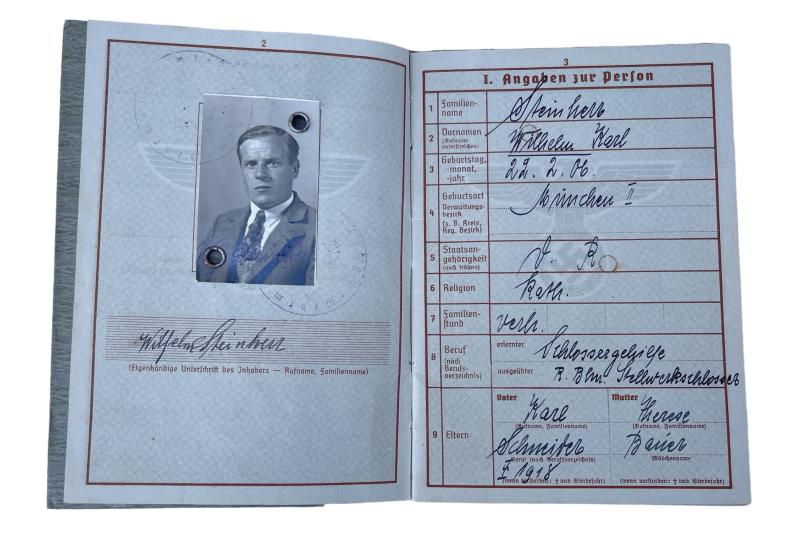 2
Wilhelm Steinherr
(Eigenhändige Unterschrift des Inhabers — Rufname, Familienname)
3
I. Angaben zur Person
1 Familienname Steinherr
2 Vornamen (Rufname unterstreichen) Wilhelm Karl
3 Geburtstag, -monat, -jahr 22. 2. 06.
4 Geburtsort München II
Verwaltungsbezirk
(z. B. Kreis, Reg. Bezirk)
5 Staatsangehörigkeit (auch frühere) D. R.
6 Religion kath.
7 Familienstand verh.
8 Beruf (nach Berufsverzeichnis) erlernter Schlossergehilfe
ausgeübter R. Bhn. Stellwerkschlosser
9 Eltern
Vater Karl
(Rufname, Familienname)
Schneider
Beruf (nach Berufsverzeichnis)
† 1918
(wenn verstorben: † und Sterbejahr)
Mutter Therese
(Rufname, Familienname)
Bauer
Mädchenname
(wenn verstorben: † und Sterbejahr)